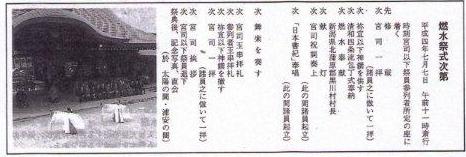 燃水祭式次第
平成四年七月七日　午前十一時斎行
時刻宮司以下祭員参列者所定の座に
着く
先　修祓
次　宮司一拝　（諸員之に倣いて一拝）
次　祢宜以下神饌を供す
次　清和四条流庖丁式奉納
次　燃水奉献
　　新潟県北蒲原郡黒川村村長
次　献灯
次　宮司祝詞奏上　（此の間諸員起立）
次　「日本書紀」奉唱
　　（此の間諸員起立）
次　舞楽を奏す
次　宮司玉串拝礼
次　参列者玉串拝礼
次　祢宜以下神饌を徹す
次　宮司一拝
　　（諸員之に倣いて一拝）
次　宮司挨拶
次　宮司以下祭員退下
祭典後、記念写真、直会
（於　太陽の間・浦安の間）